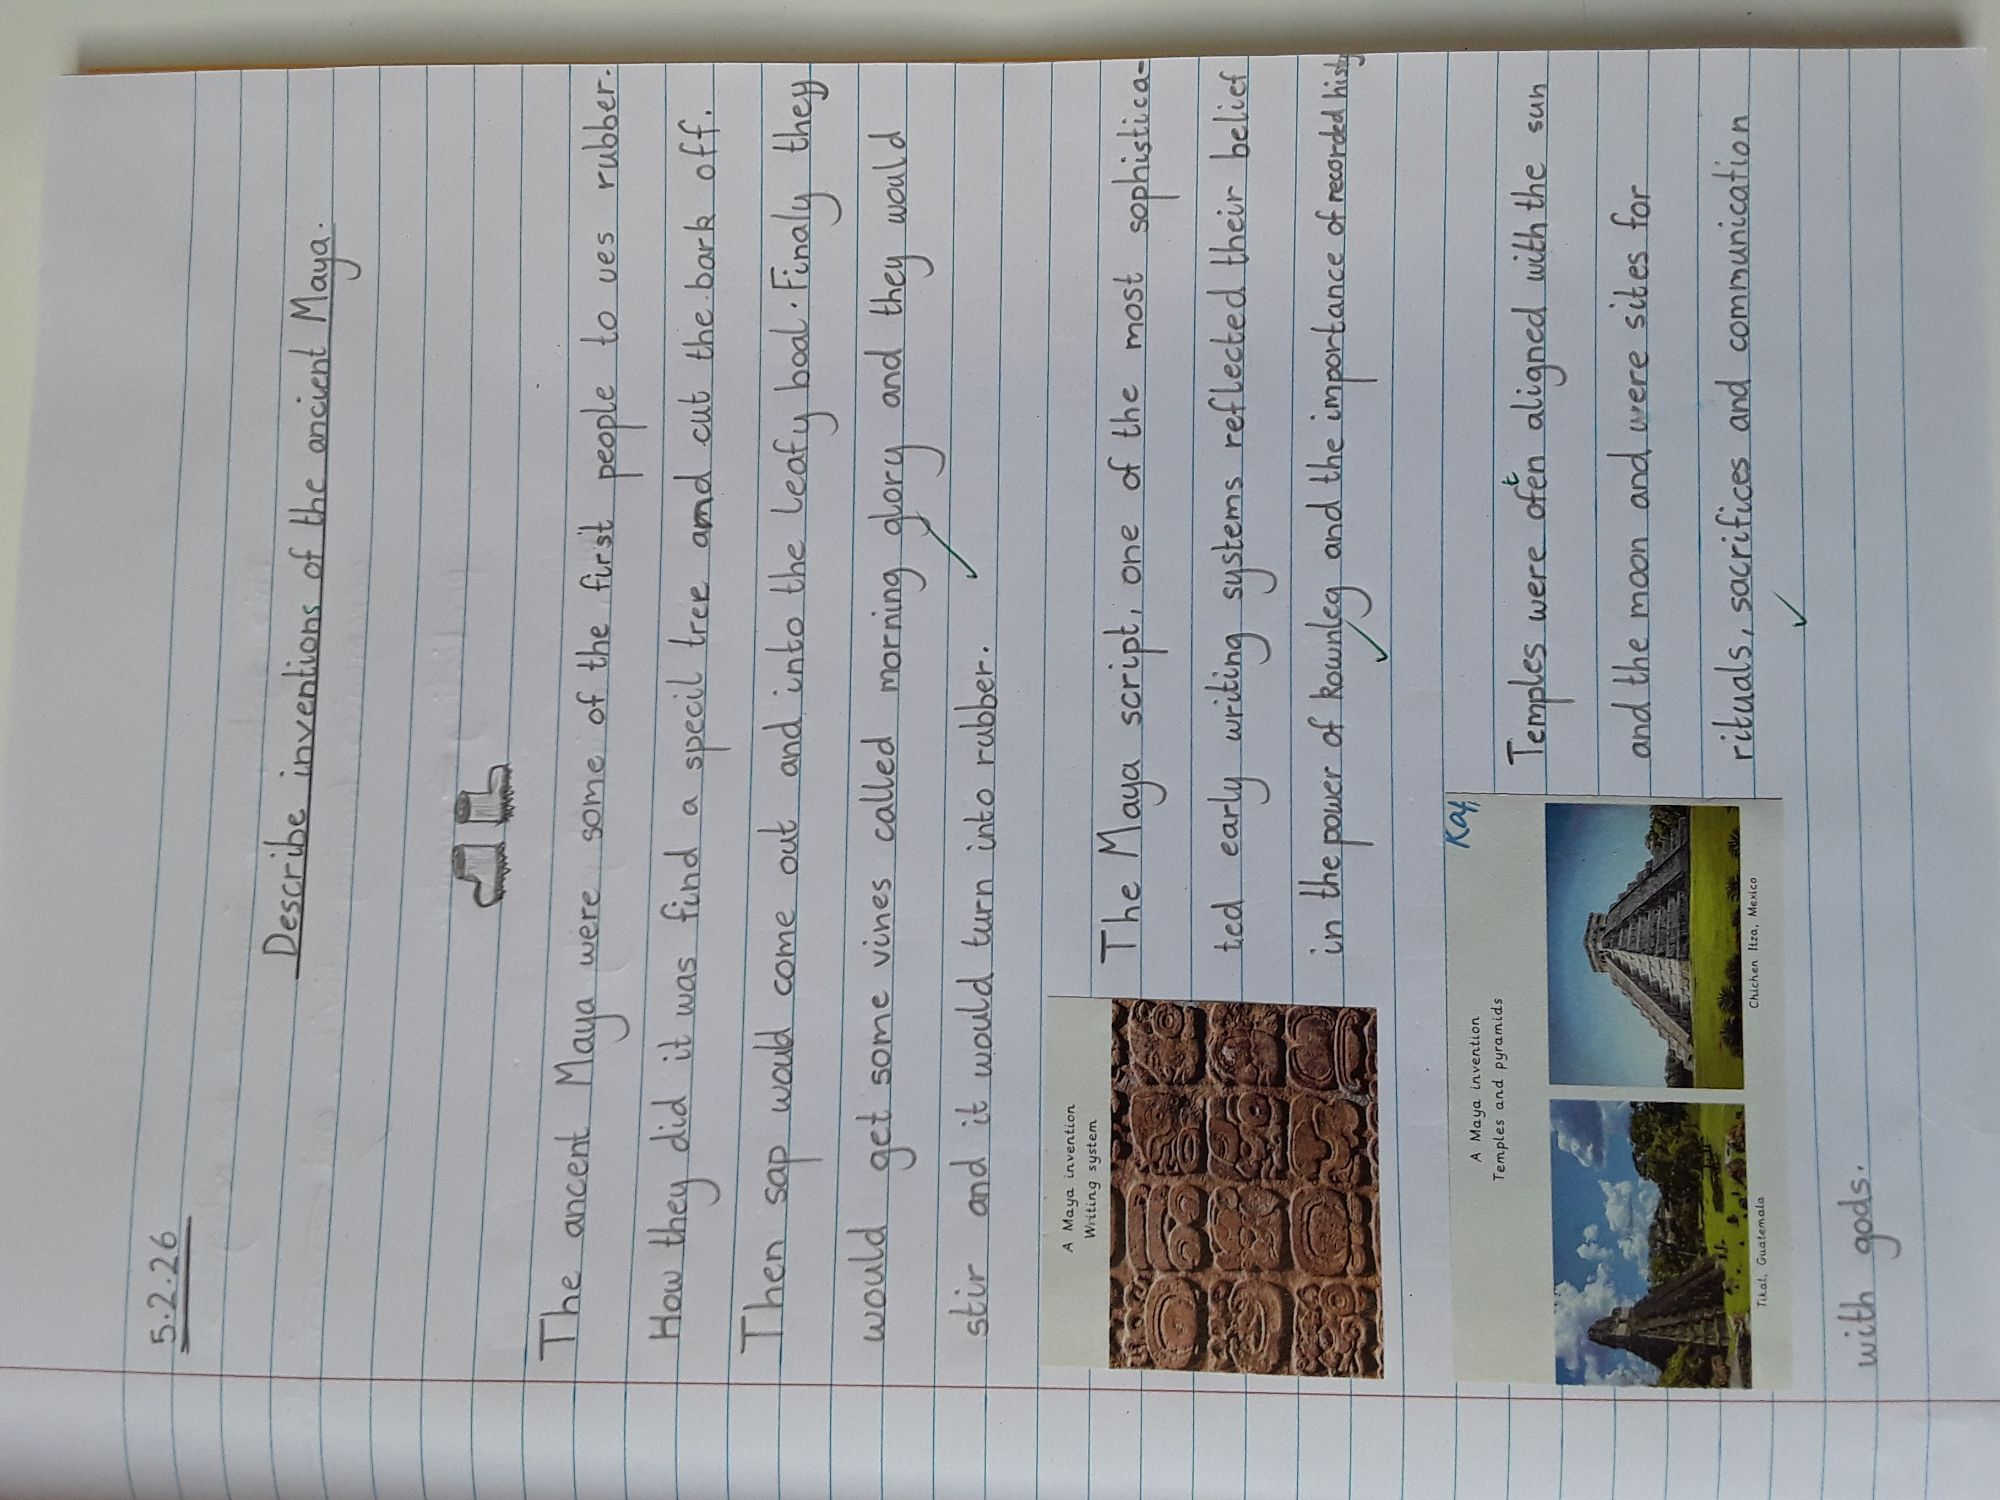 5.2.26
Describe inventions of the ancient Maya.
The ancent Maya were some of the first people to ues rubber.
How they did it was find a specil tree and cut the bark off.
Then sap would come out and into the leafy boal. Finaly they
would get some vines called morning glory and they would
stir and it would turn into rubber.
A Maya invention
Writing system
The Maya script, one of the most sophistica-
ted early writing systems reflected their belief
in the power of kownleg and the importance of recorded
A Maya invention
Temples and pyramids
Tikal, Guatemala
Chichen Itza, Mexico
Temples were often aligned with the sun
and the moon and were sites for
rituals, sacrifices and communication
with gods.